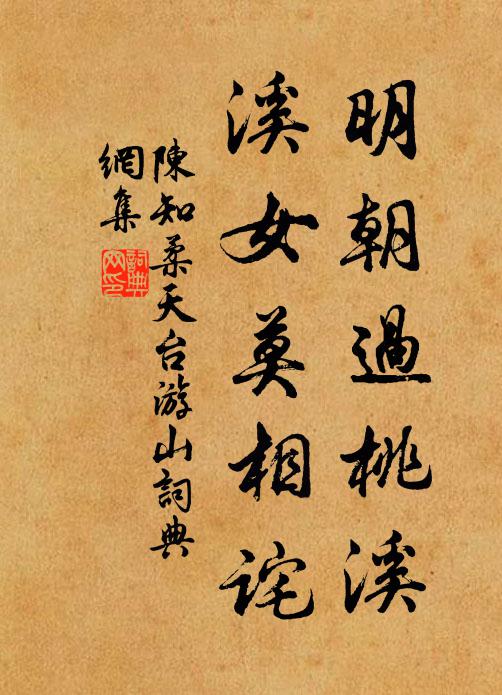 明朝過桃溪
溪女莫相詫
陳知柔天台游山詞典
網集
詞典網印